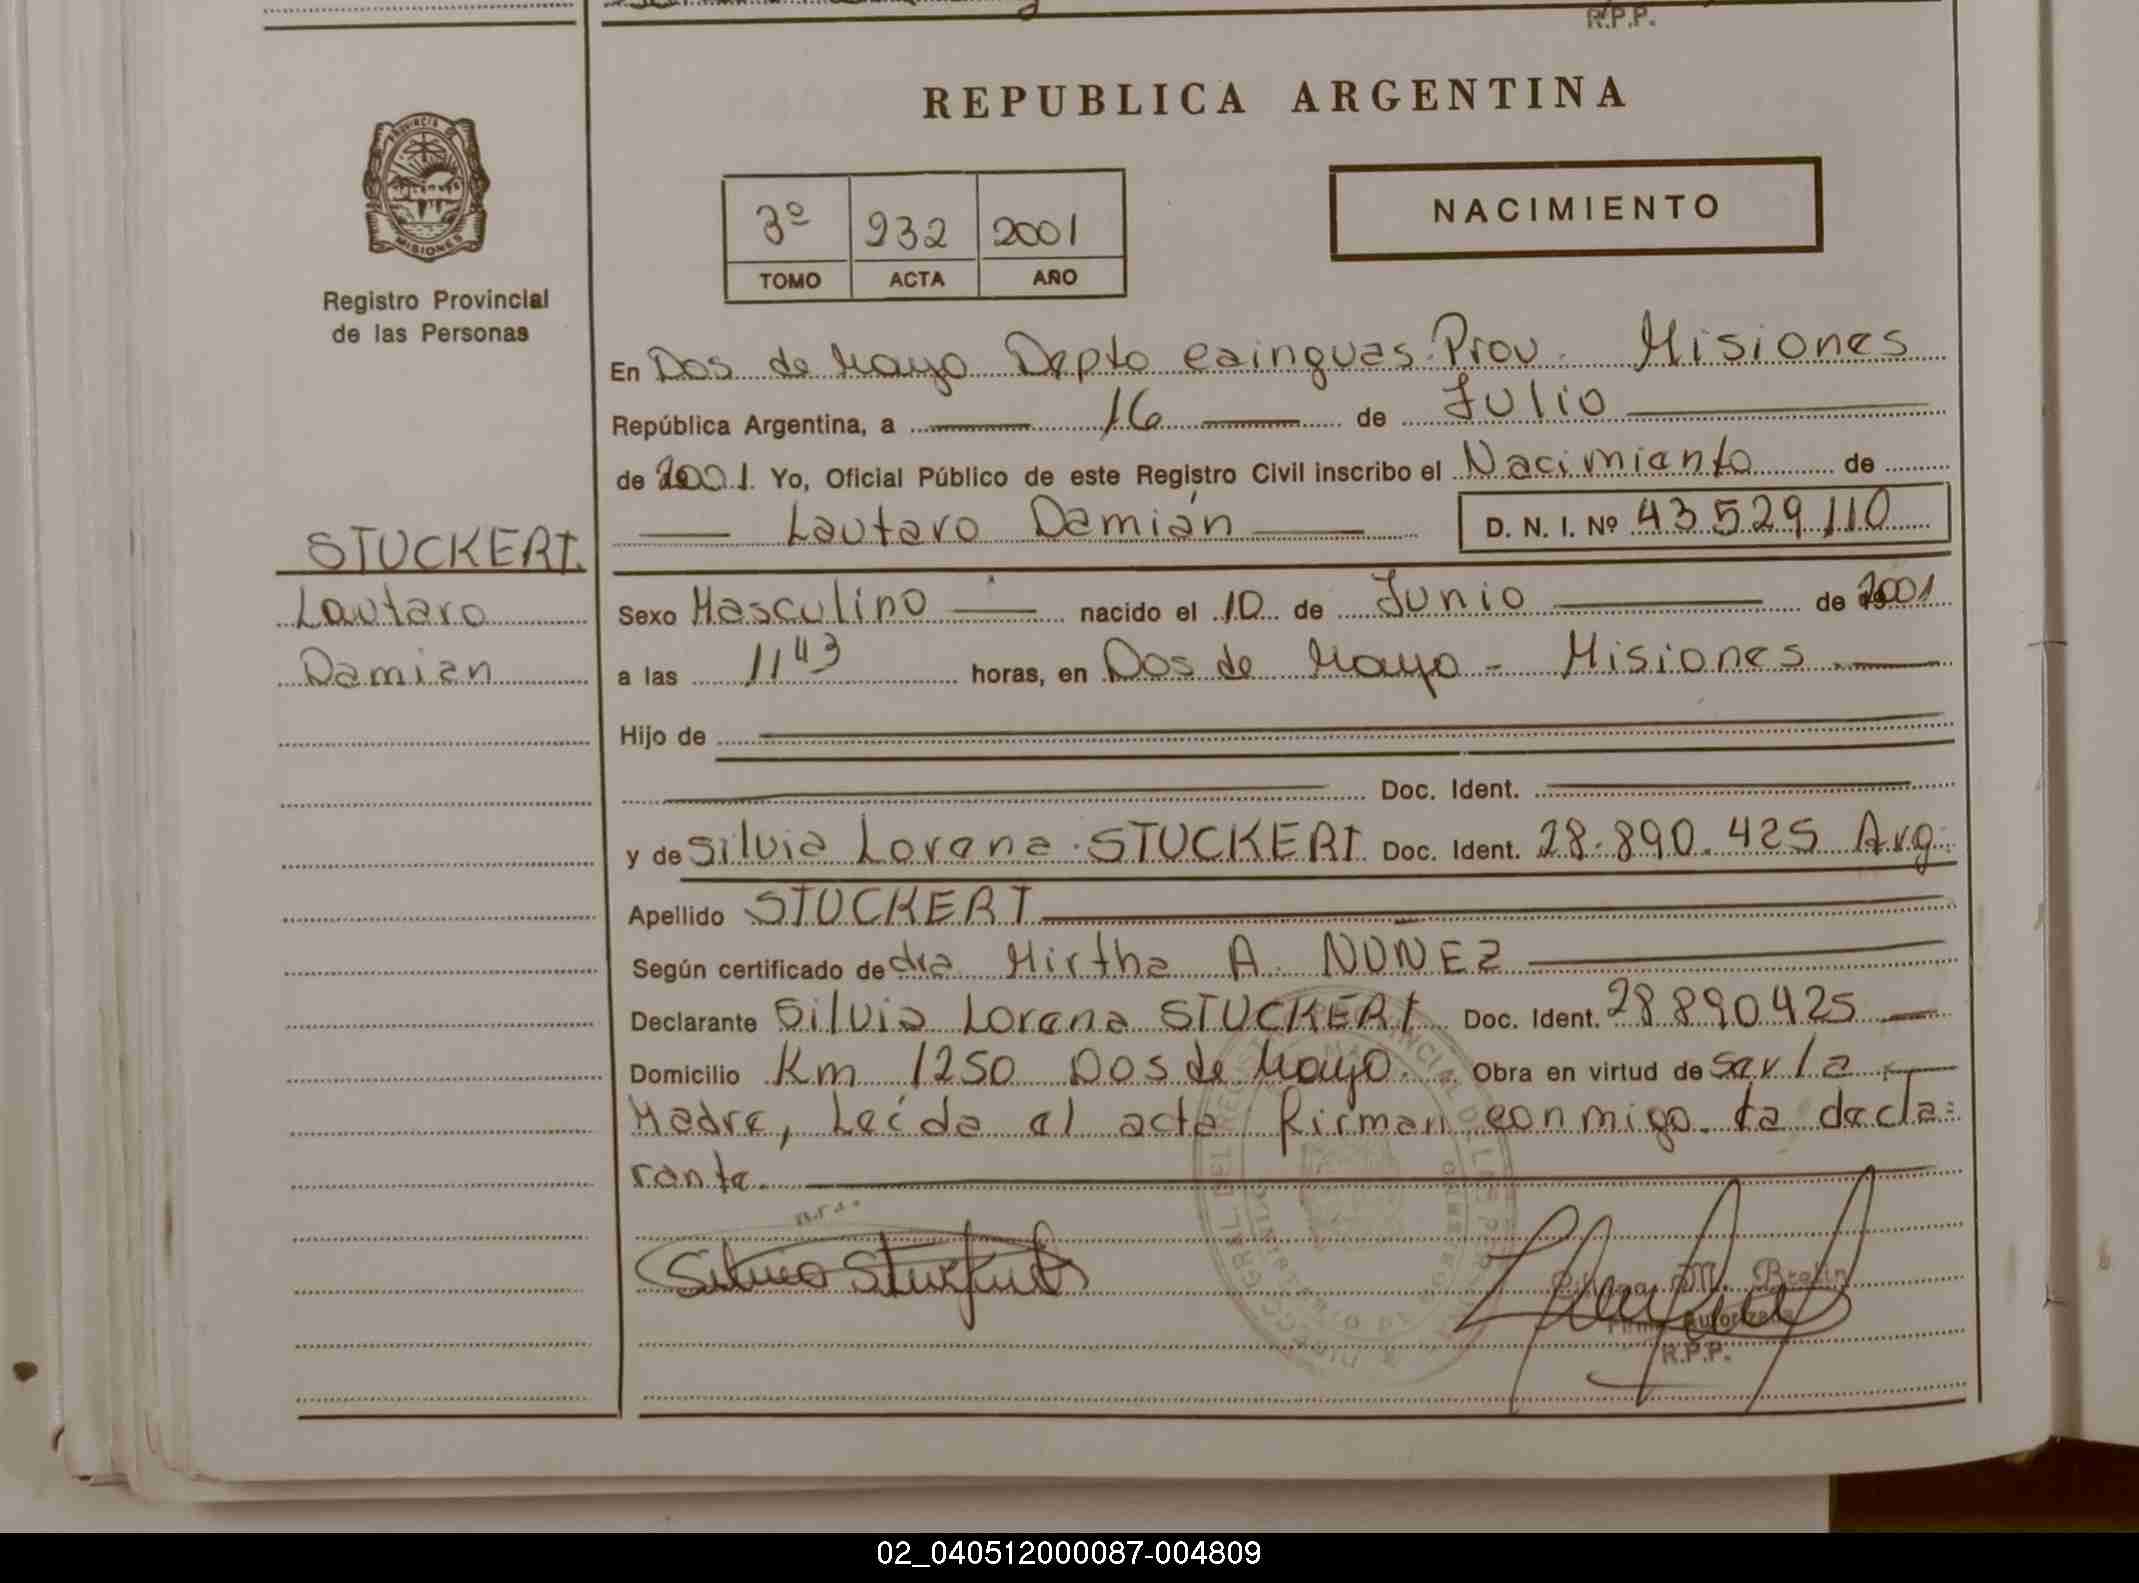 R.P.P.
REPUBLICA ARGENTINA
PROVINCIA DE
MISIONES
Registro Provincial
de las Personas
3º 932 2001
TOMO ACTA AÑO
NACIMIENTO
En Dos de Mayo Depto Cainguas Prov. Misiones
República Argentina, a 16 de Julio
de 2001. Yo, Oficial Público de este Registro Civil inscribo el Nacimiento de
Lautaro Damián D. N. I. Nº 43529110
STUCKERT
Lautaro
Damian
Sexo Masculino nacido el 10 de Junio de 2001
a las 11 43 horas, en Dos de Mayo - Misiones
Hijo de
Doc. Ident.
y de Silvia Lorena STUCKERT Doc. Ident. 28.890.425 Arg.
Apellido STUCKERT
Según certificado de dra Mirtha A. NUNEZ
Declarante Silvia Lorena STUCKERT Doc. Ident. 28890425
Domicilio Km 1250 Dos de Mayo. Obra en virtud de ser la
Madre, Leída el acta firman conmigo la decla=
rante.
R.P.P.
02_040512000087-004809